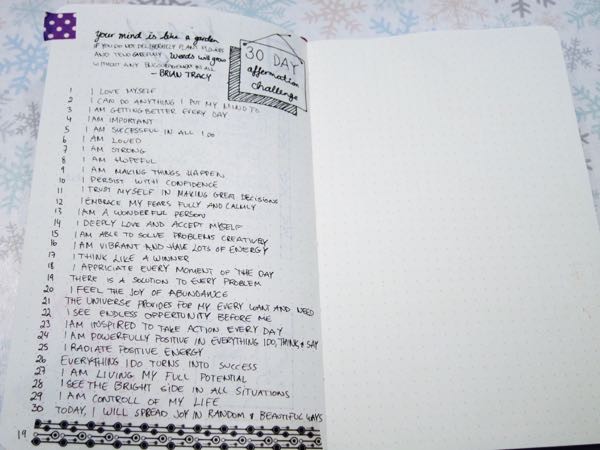 your mind is like a garden
IF YOU DO NOT DELIBERATELY PLANT FLOWERS
AND TEND CAREFULLY, Weeds will grow
WITHOUT ANY ENCOURAGEMENT AT ALL
- BRIAN TRACY
30 DAY
affermation
challenge
1 I LOVE MYSELF
2 I CAN DO ANYTHING I PUT MY MIND TO
3 I AM GETTING BETTER EVERY DAY
4 I AM IMPORTANT
5 I AM SUCCESSFUL IN ALL I DO
6 I AM LOVED
7 I AM STRONG
8 I AM HOPEFUL
9 I AM MAKING THINGS HAPPEN
10 I PERSIST WITH CONFIDENCE
11 I TRUST MYSELF IN MAKING GREAT DECISIONS
12 I EMBRACE MY FEARS FULLY AND CALMLY
13 I AM A WONDERFUL PERSON
14 I DEEPLY LOVE AND ACCEPT MYSELF
15 I AM ABLE TO SOLVE PROBLEMS CREATIVELY
16 I AM VIBRANT AND HAVE LOTS OF ENERGY
17 I THINK LIKE A WINNER
18 I APPRICIATE EVERY MOMENT OF THE DAY
19 THERE IS A SOLUTION TO EVERY PROBLEM
20 I FEEL THE JOY OF ABUNDANCE
21 THE UNIVERSE PROVIDES FOR MY EVERY WANT AND NEED
22 I SEE ENDLESS OPPORTUNITY BEFORE ME
23 I AM INSPIRED TO TAKE ACTION EVERY DAY
24 I AM POWERFULLY POSITIVE IN EVERYTHING I DO, THINK, & SAY
25 I RADIATE POSITIVE ENERGY
26 EVERYTHING I DO TURNS INTO SUCCESS
27 I AM LIVING MY FULL POTENTIAL
28 I SEE THE BRIGHT SIDE IN ALL SITUATIONS
29 I AM CONTROLL OF MY LIFE
30 TODAY, I WILL SPREAD JOY IN RANDOM & BEAUTIFUL WAYS
19